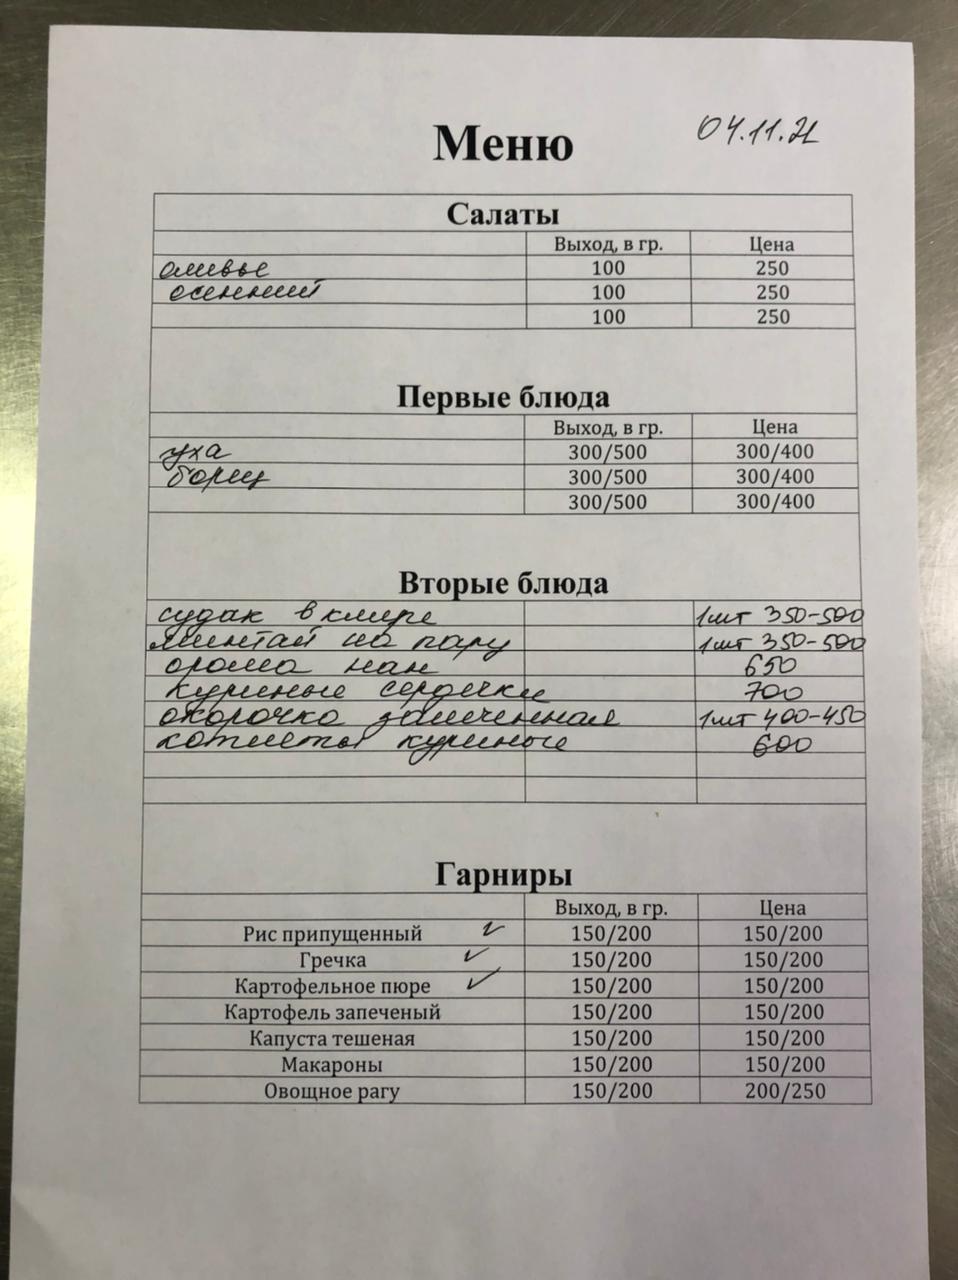 Меню 04.11.21
Салаты
Выход, в гр. Цена
оливье 100 250
осенний 100 250
100 250
Первые блюда
Выход, в гр. Цена
уха 300/500 300/400
борщ 300/500 300/400
300/500 300/400
Вторые блюда
судак в кляре 1шт 350-500
минтай на пару 1шт 350-500
орома нан 650
куриные сердечки 700
окорочка запеченная 1шт 400-450
котлеты куриные 600
Гарниры
Выход, в гр. Цена
Рис припущенный ✓ 150/200 150/200
Гречка ✓ 150/200 150/200
Картофельное пюре ✓ 150/200 150/200
Картофель запеченый 150/200 150/200
Капуста тешеная 150/200 150/200
Макароны 150/200 150/200
Овощное рагу 150/200 200/250